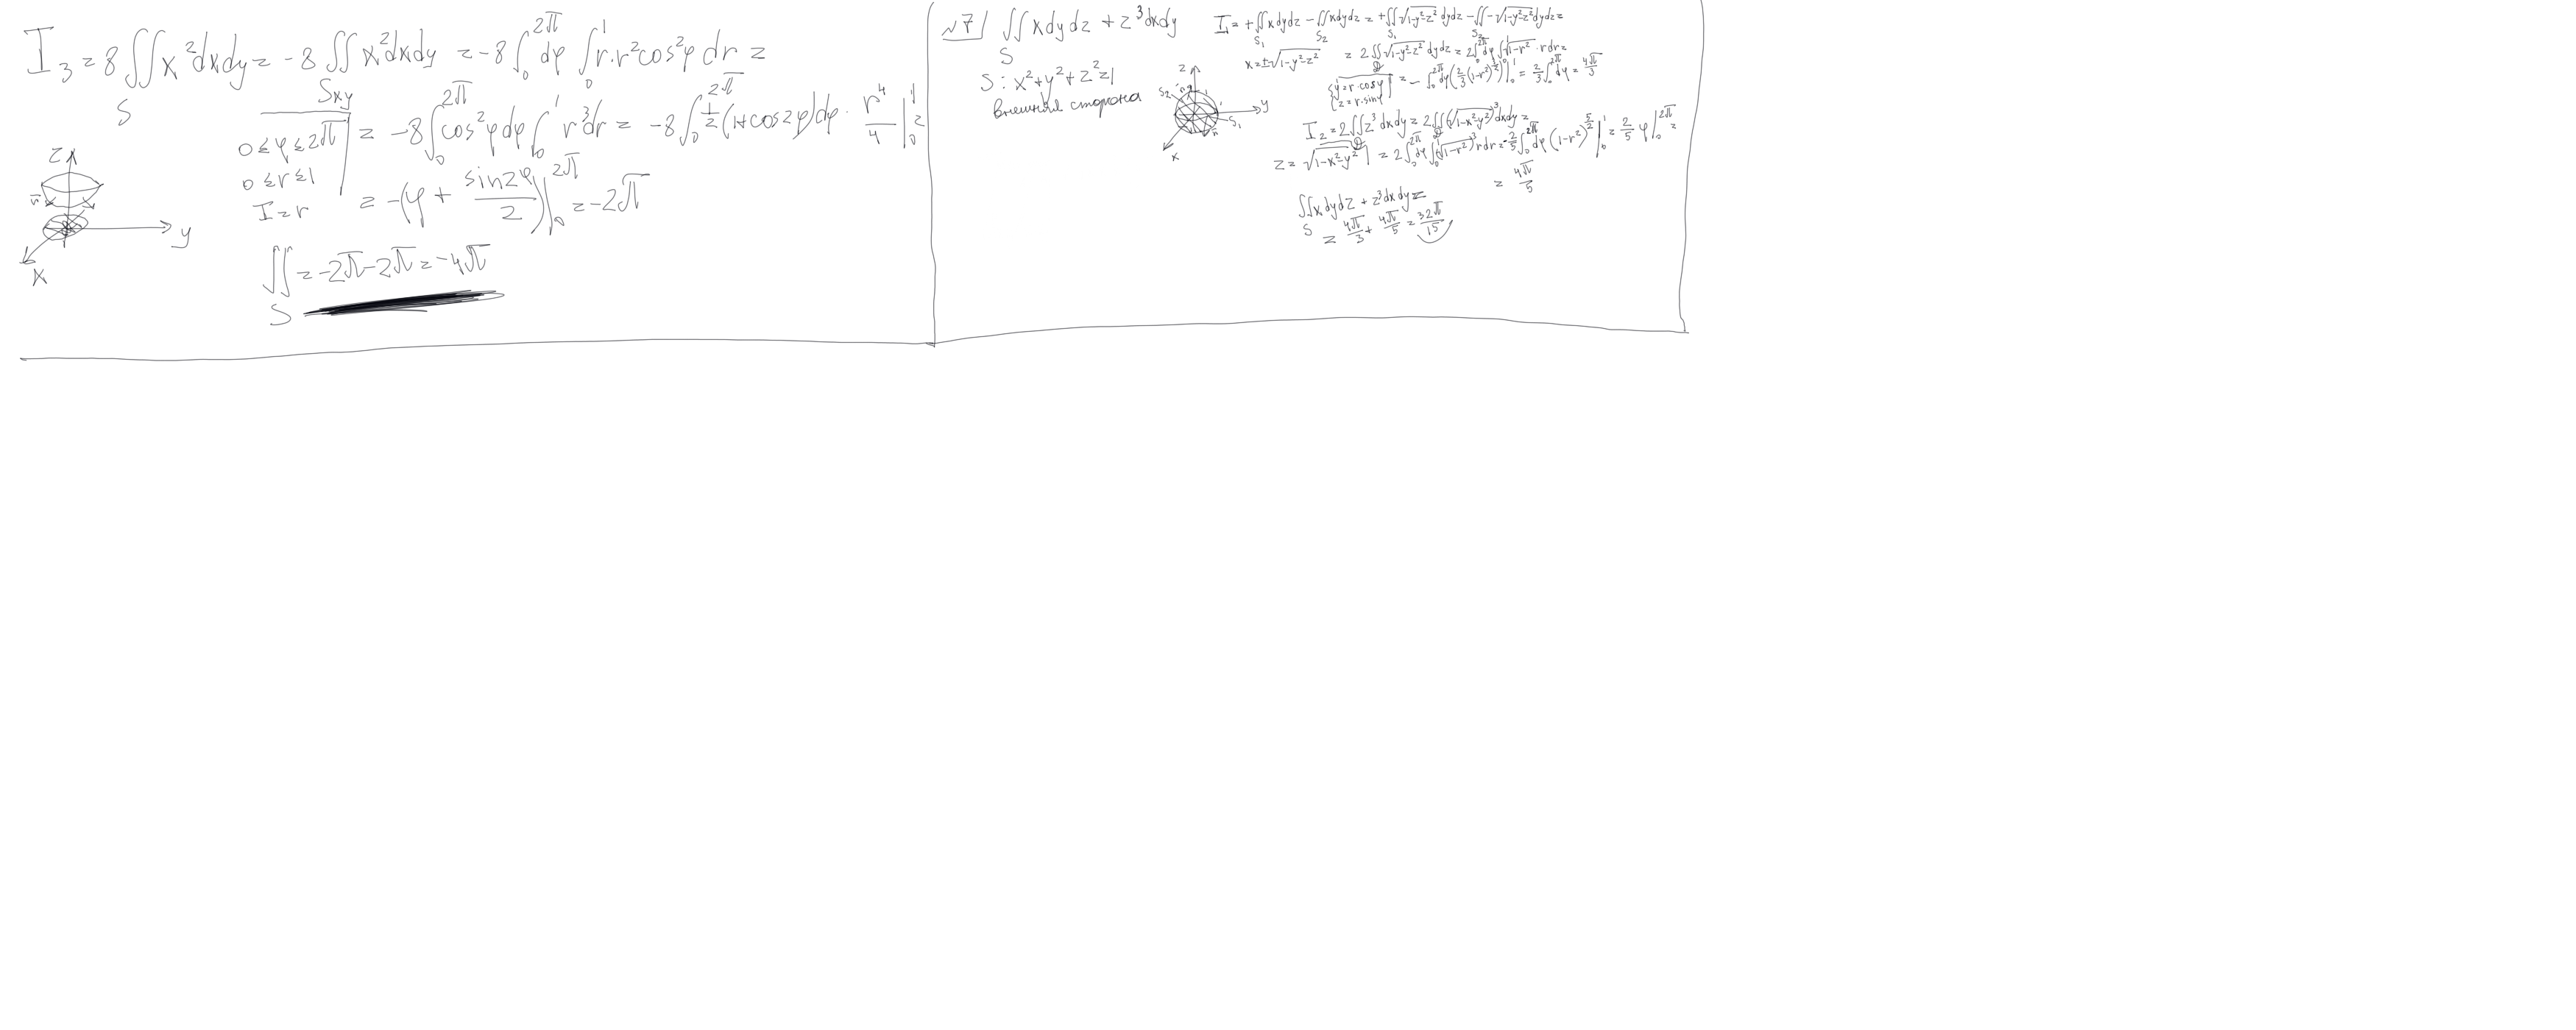 I₃ = 8 ∬ x² dxdy = -8 ∬ x² dxdy = -8 ∫₀^2π dφ ∫₀^1 r·r² cos²φ dr =
S Sxy
0 ≤ φ ≤ 2π = -8 ∫₀^2π cos²φ dφ ∫₀^1 r³ dr = -8 ∫₀^2π 1/2 (1+cos2φ) dφ · r⁴/4 |₀^1 =
0 ≤ r ≤ 1
I = r = -(φ + sin2φ/2)|₀^2π = -2π
z
n
y
x
∬ = -2π - 2π = -4π
S
√7 ∬ x dy dz + z³ dxdy
S
S: x² + y² + z² = 1
внешняя сторона
z
S₂
n
y
S₁
n
x
I₁ = + ∬ x dydz - ∬ x dydz = + ∬ √1-y²-z² dydz - ∬ -√1-y²-z² dydz =
S₁ S₂ S₁ S₂
x = ±√1-y²-z² = 2 ∬ √1-y²-z² dydz = 2 ∫₀^2π dφ ∫₀^1 √1-r² · r dr =
D
{y = r·cosφ
z = r·sinφ = - ∫₀^2π dφ (2/3 (1-r²)^3/2)|₀^1 = 2/3 ∫₀^2π dφ = 4π/3
I₂ = 2 ∬ z³ dxdy = 2 ∬ (√1-x²-y²)³ dxdy =
D D
z = √1-x²-y² = 2 ∫₀^2π dφ ∫₀^1 (√1-r²)³ r dr = -2/5 ∫₀^2π dφ (1-r²)^5/2 |₀^1 = 2/5 φ |₀^2π =
= 4π/5
∬ x dydz + z³ dxdy =
S = 4π/3 + 4π/5 = 32π/15